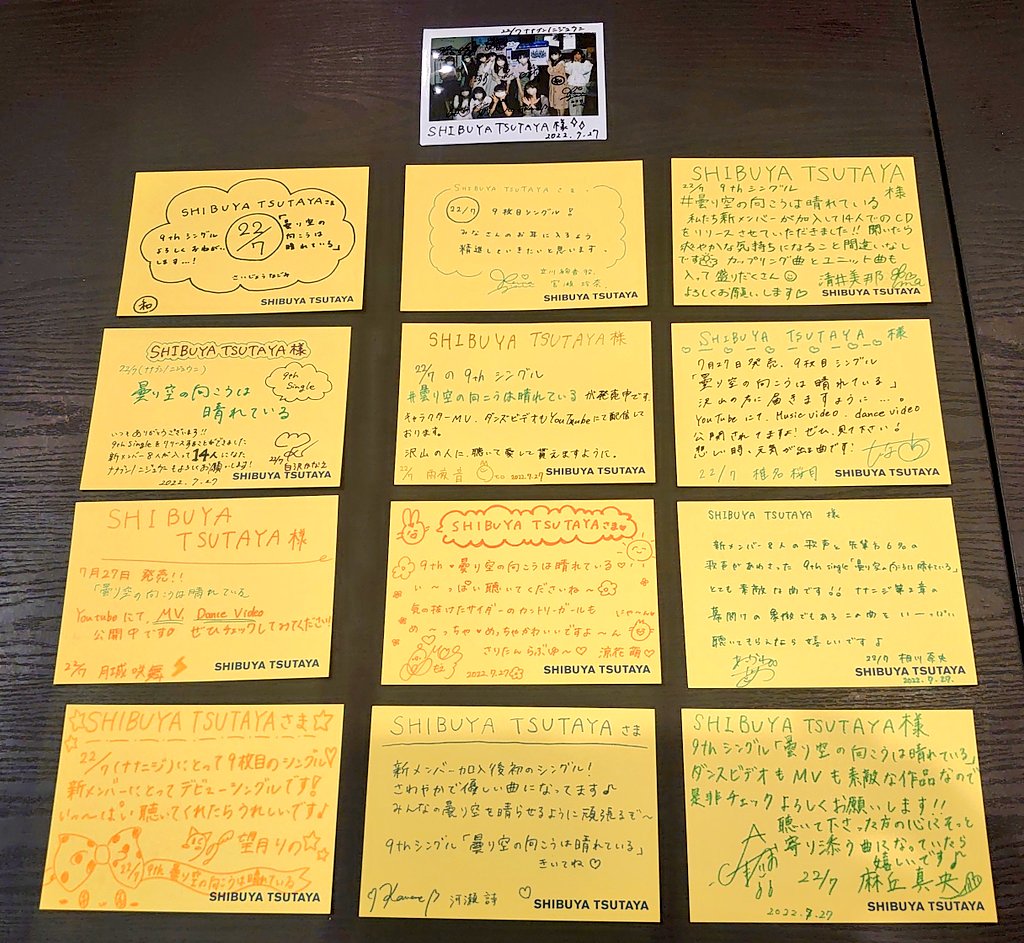 22/7 ナナブンノニジュウニ
SHIBUYA TSUTAYA 様
2022.7.27
SHIBUYA TSUTAYAさま
9thシングル
22/7
「曇り空の
向こうは
晴れている」
よろしくおねがい
します…!
さいじょうなごみ
和
SHIBUYA TSUTAYA
SHIBUYA TSUTAYA さま
22/7
9枚目シングル!
みなさんのお耳に入るよう
精進していきたいと思います。
宮瀬玲奈
SHIBUYA TSUTAYA
SHIBUYA TSUTAYA
様
22/7 9thシングル
#曇り空の向こうは晴れている
私たち新メンバーが加入して14人でのCD
をリリースさせていただきました!!聞いたら
爽やかな気持ちになること間違いなし
です カップリング曲とユニット曲も
入って盛りだくさん
よろしくお願いします♡
清井美那
SHIBUYA TSUTAYA
SHIBUYA TSUTAYA 様
22/7(ナナブンノニジュウニ)
9th
Single
曇り空の向こうは
晴れている
いつもありがとうございます!!
9th Singleをリリースすることができました
新メンバー8人が入って14人になった
ナナブンノニジュウニもよろしくお願いします!
22/7
白沢かなえ
2022.7.27
SHIBUYA TSUTAYA
SHIBUYA TSUTAYA 様
22/7の9thシングル
#曇り空の向こうは晴れている が発売中です。
キャラクターMV、ダンスビデオもYouTubeにて配信して
おります。
沢山の人に、聴いて愛して貰えますように。
22/7 雨夜音
2022.7.27
SHIBUYA TSUTAYA
SHIBUYA TSUTAYA 様
7月27日発売、9枚目シングル
「曇り空の向こうは晴れている」
沢山の方に届きますように…。
YouTubeにて、Music video、dance video
公開されてますよ!ぜひ、見て下さい!
悲しい時、元気が出る曲です!
22/7 椎名桜月
SHIBUYA TSUTAYA
SHIBUYA
TSUTAYA 様
7月27日 発売!!
「曇り空の向こうは晴れている」
YouTubeにて、MV、Dance Video
公開中です♪ ぜひチェックしてみてください!
22/7 月城咲舞
SHIBUYA TSUTAYA
SHIBUYA TSUTAYAさま♡
9th♥曇り空の向こうは晴れている♡
い〜っぱい聴いてくださいね〜
気の抜けたサイダーのカントリーガールも
め〜っちゃ♥めっちゃかわいいですよ〜ん
さりたんらぶゆ〜♡ 涼花萌♡
2022.7.27
SHIBUYA TSUTAYA
SHIBUYA TSUTAYA 様
新メンバー8人の歌声と先輩方6名の
歌声があわさった 9th single「曇り空の向こうは晴れている」
とても素敵な曲です♪♪ ナナニジ第2章の
幕開けの象徴でもあるこの曲をい〜っぱい
聴いてもらえたら嬉しいです♪
22/7 相川奈央
SHIBUYA TSUTAYA
2022.7.27.
☆SHIBUYA TSUTAYAさま☆
22/7(ナナニジ)にとって9枚目のシングル♡
新メンバーにとってデビューシングルです!
い〜っぱい聴いてくれたらうれしいです♪
望月りの
22/7 9th 曇り空の向こうは晴れている
SHIBUYA TSUTAYA
SHIBUYA TSUTAYA さま
新メンバー加入後初のシングル!
さわやかで優しい曲になってます♪
みんなの曇り空を晴らせるように頑張るで〜
9thシングル「曇り空の向こうは晴れている」
きいてね♡
河瀬詩
SHIBUYA TSUTAYA
SHIBUYA TSUTAYA様
9thシングル「曇り空の向こうは晴れている」
ダンスビデオもMVも素敵な作品なので
是非チェックよろしくお願いします!!
聴いて下さった方の心にそっと
寄り添う曲になっていたら
嬉しいです♪
22/7 麻丘真央
2022.7.27
SHIBUYA TSUTAYA